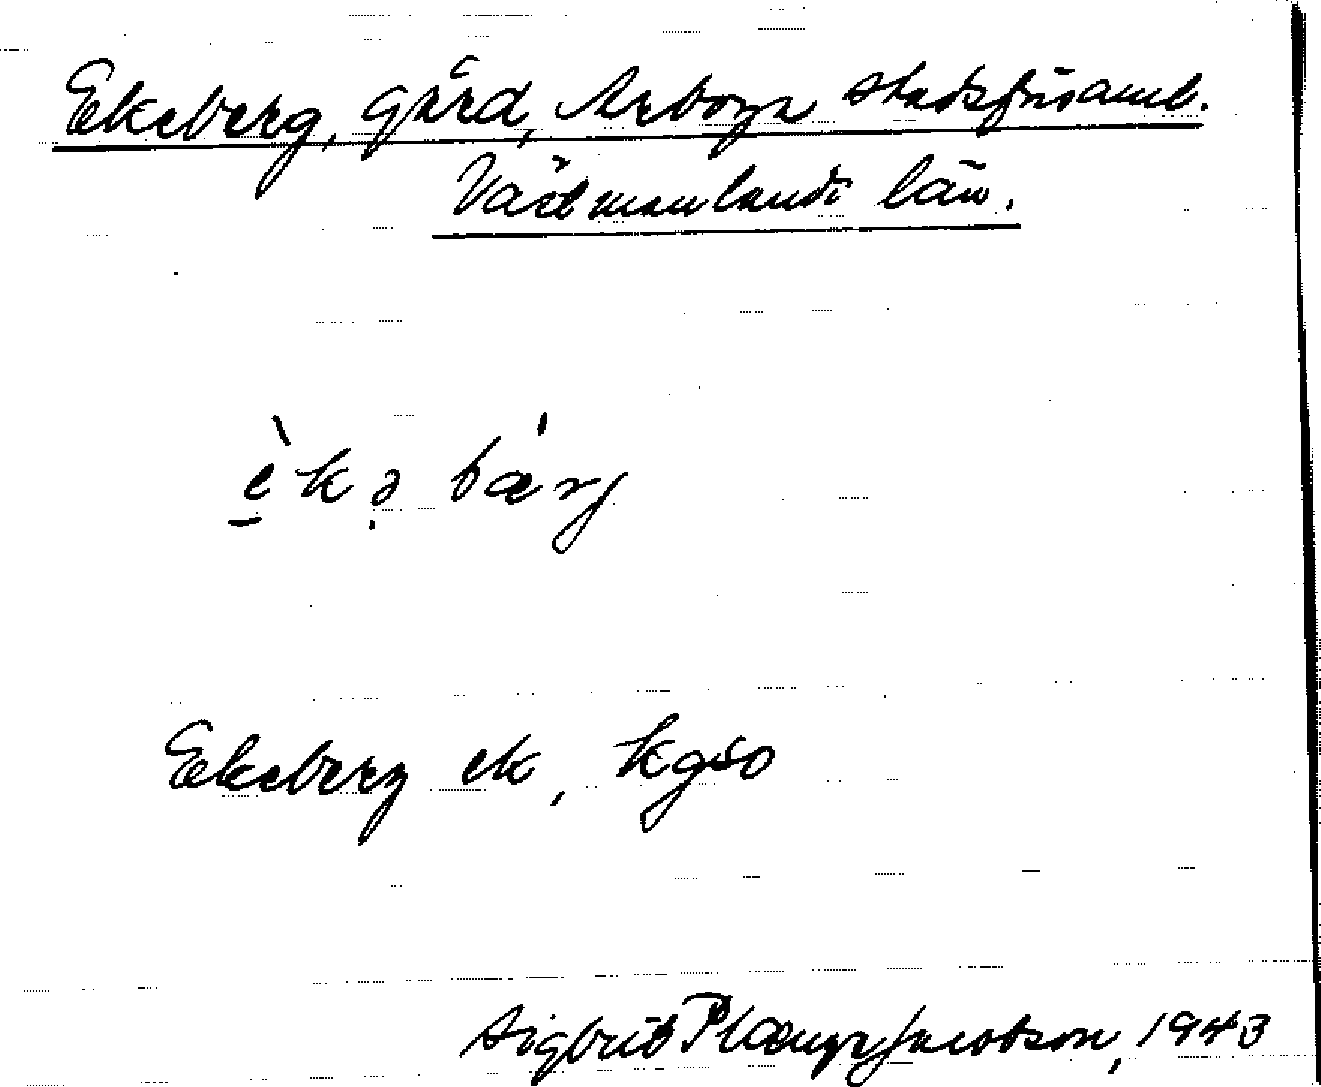 Ekeberg, gård, Arboga stadsförsaml.
Västmanlands län.
è̱kə̣ bæ'rj
Ekeberg ek, kgso
Sigbrit Plænge Jacobson, 1943